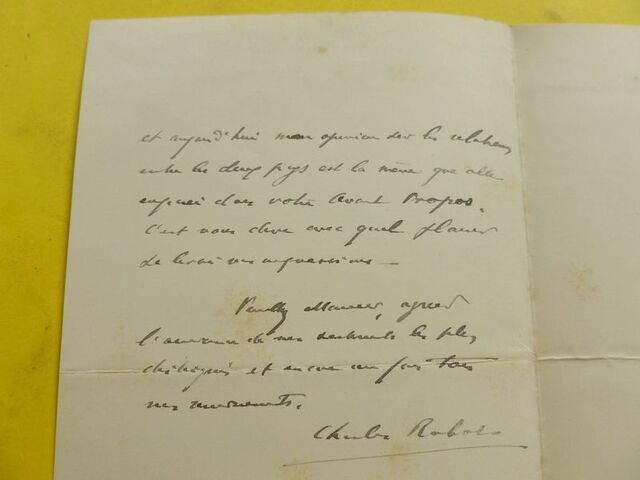 et aujourd'hui mon opinion sur les relations
entre les deux pays est la même que celle
exprimée dans votre Avant Propos.
C'est vous dire avec quel plaisir
je lirai vos impressions —
Veuillez Monsieur, agréer
l'assurance de mes sentiments les plus
distingués et encore une fois tous
mes remerciements.
Charles Rabot